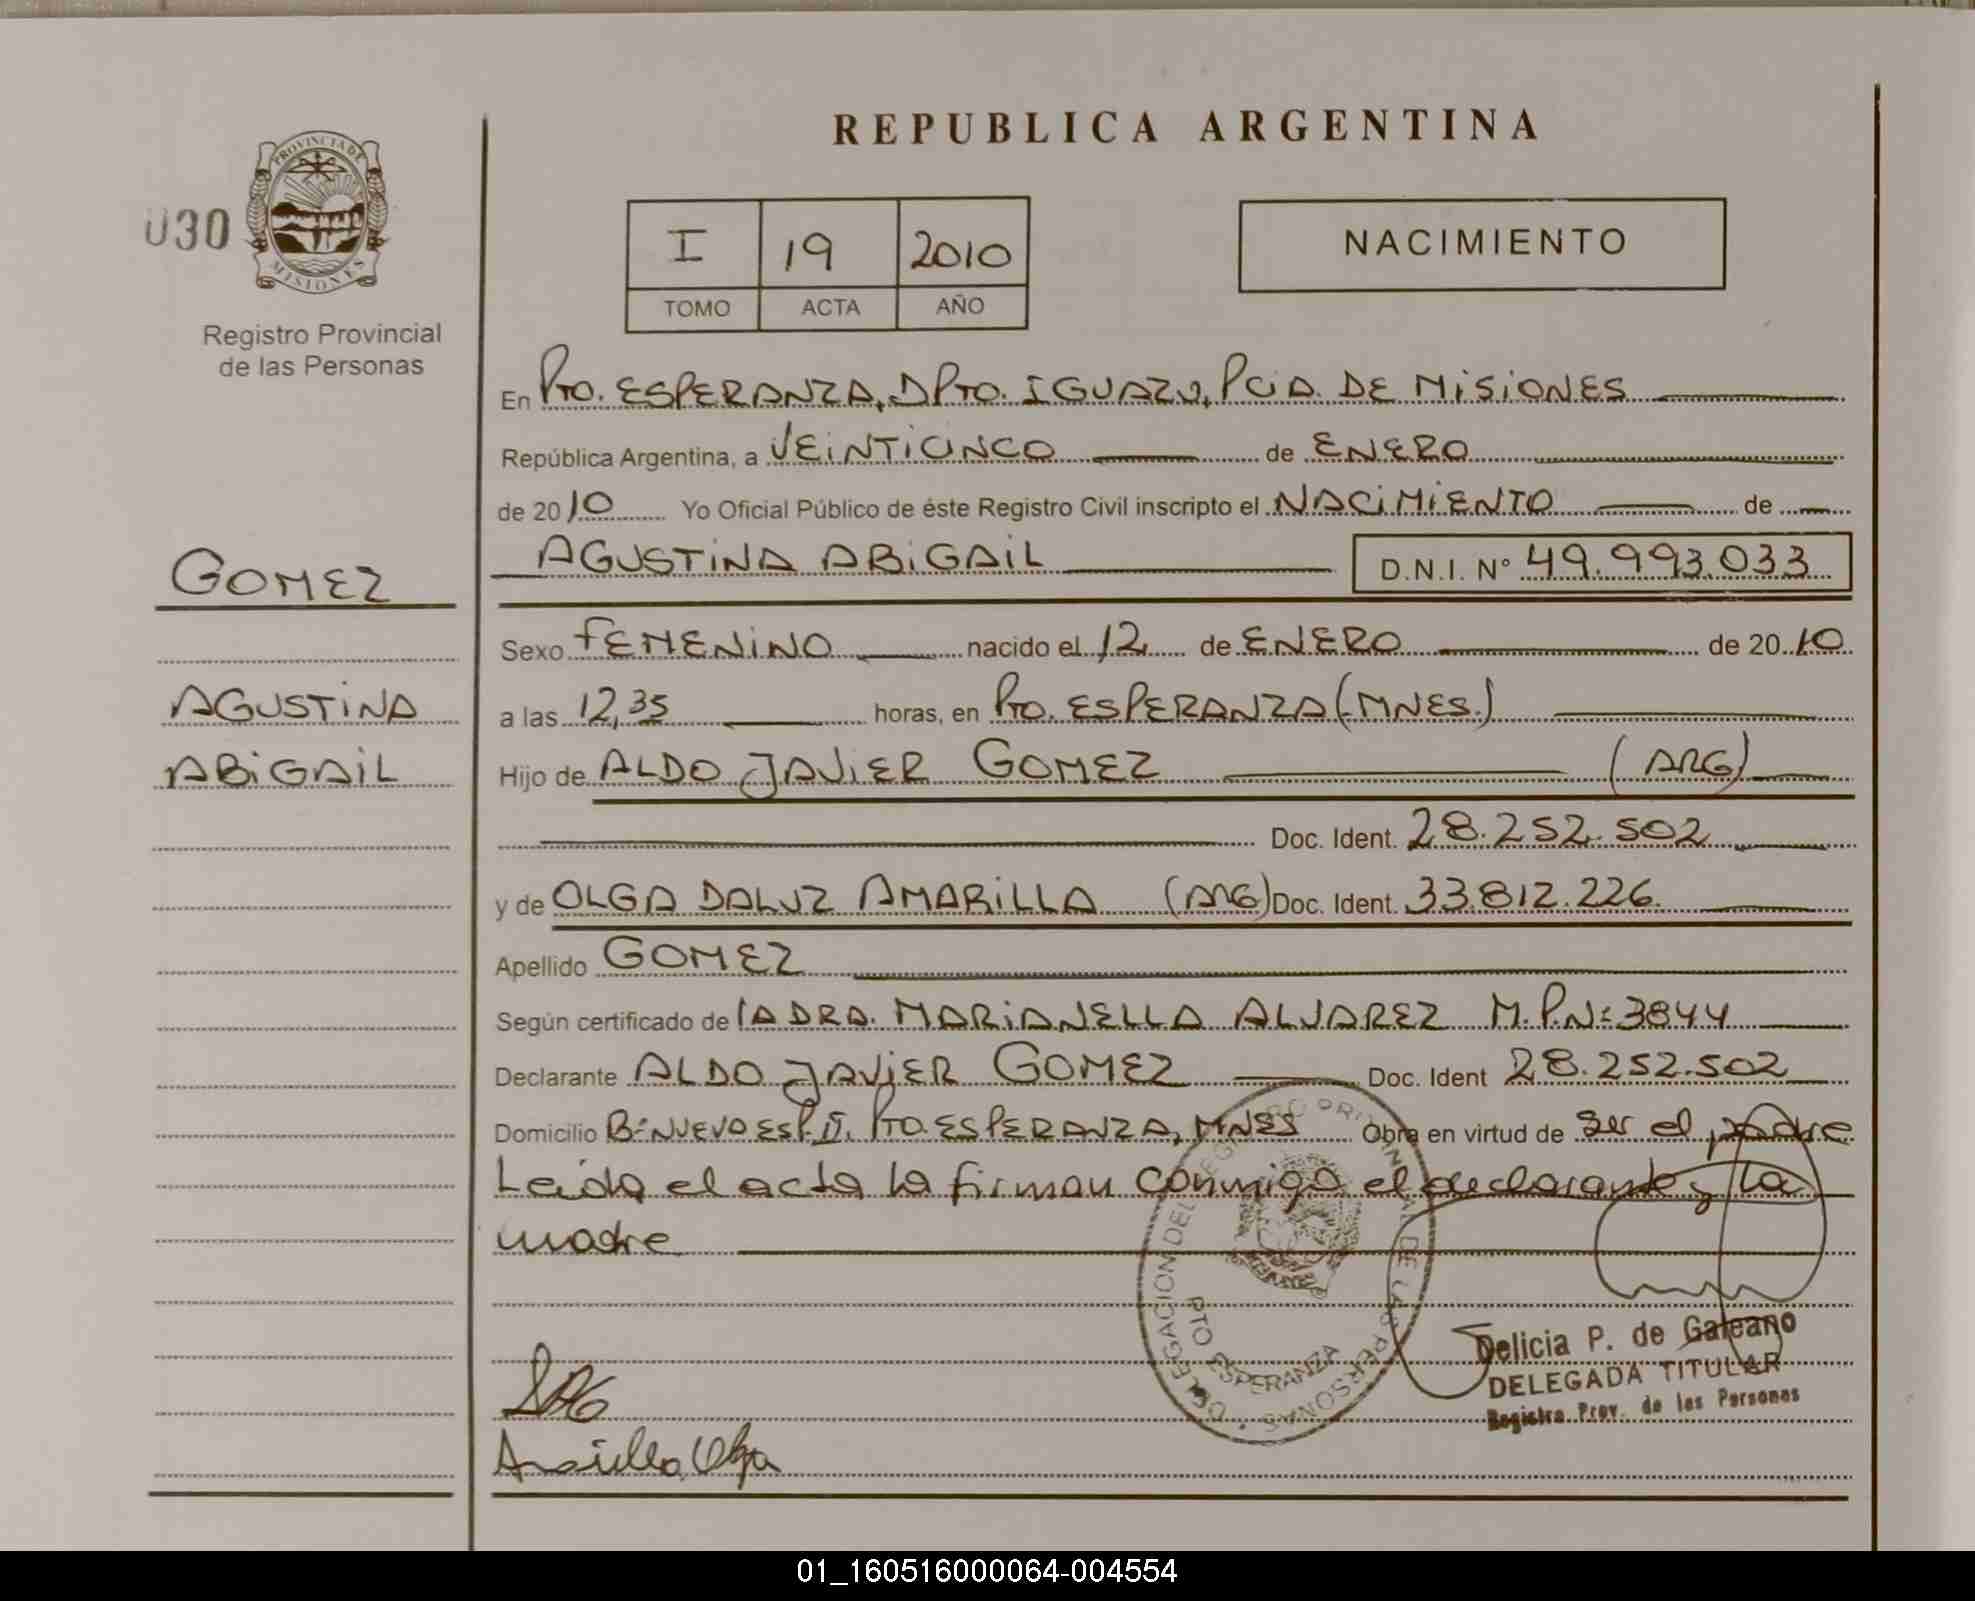 REPUBLICA ARGENTINA
030
PROVINCIA DE
MISIONES
Registro Provincial
de las Personas
I 19 2010
TOMO ACTA AÑO
NACIMIENTO
En Pto. ESPERANZA, DPto. IGUAZU, PCIA. DE MISIONES
República Argentina, a VEINTICINCO de ENERO
de 2010 Yo Oficial Público de éste Registro Civil inscripto el NACIMIENTO de
AGUSTINA ABIGAIL D.N.I. N° 49.993.033
GOMEZ
AGUSTINA
ABIGAIL
Sexo FEMENINO nacido el 12 de ENERO de 2010
a las 12,35 horas, en Pto. ESPERANZA (MNES.)
Hijo de ALDO JAVIER GOMEZ (ARG)
Doc. Ident. 28.252.502
y de OLGA DALUZ AMARILLA (ARG) Doc. Ident. 33.812.226
Apellido GOMEZ
Según certificado de lA DRA. MARIANELLA ALVAREZ M.P.Nº 3844
Declarante ALDO JAVIER GOMEZ Doc. Ident 28.252.502
Domicilio Bº NUEVO ESP. II, Pto. ESPERANZA, MNES Obra en virtud de ser el padre
Leida el acta la firman conmigo el declarante y la
madre
DELEGACION DEL REGISTRO PROVINCIAL DE LAS PERSONAS
PTO ESPERANZA
Delicia P. de Galeano
DELEGADA TITULAR
Registro Prov. de las Personas
Amarilla, Olga
01_160516000064-004554